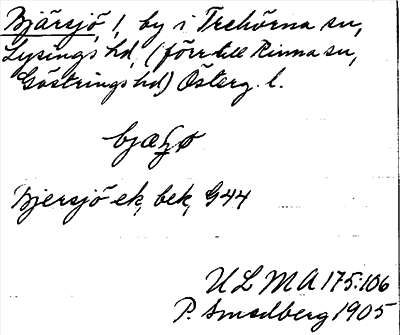 Bjärsjö 1, by i Trehörna sn,
Lysings hd, (förr till Rinna sn,
Göstrings hd) Österg. l.
Bjersjö ek, bek, G44
ULMA 175:106
P. Smedberg 1905